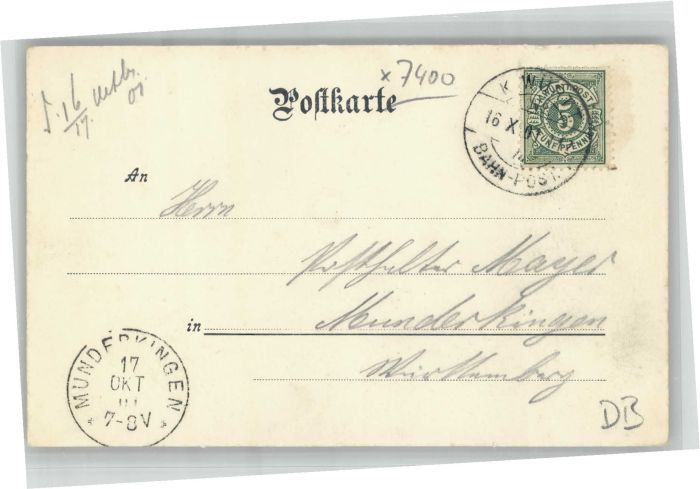 16/17. Oktbr. 01.
x 7400
Postkarte
K. WÜRTT.
16 X 01
BAHN-POST
5
FÜNF PFENNIG
An
Herrn
Posthalter Mayer
in Munderkingen
Württemberg
MUNDERKINGEN
17
OKT
01
7-8V
DB